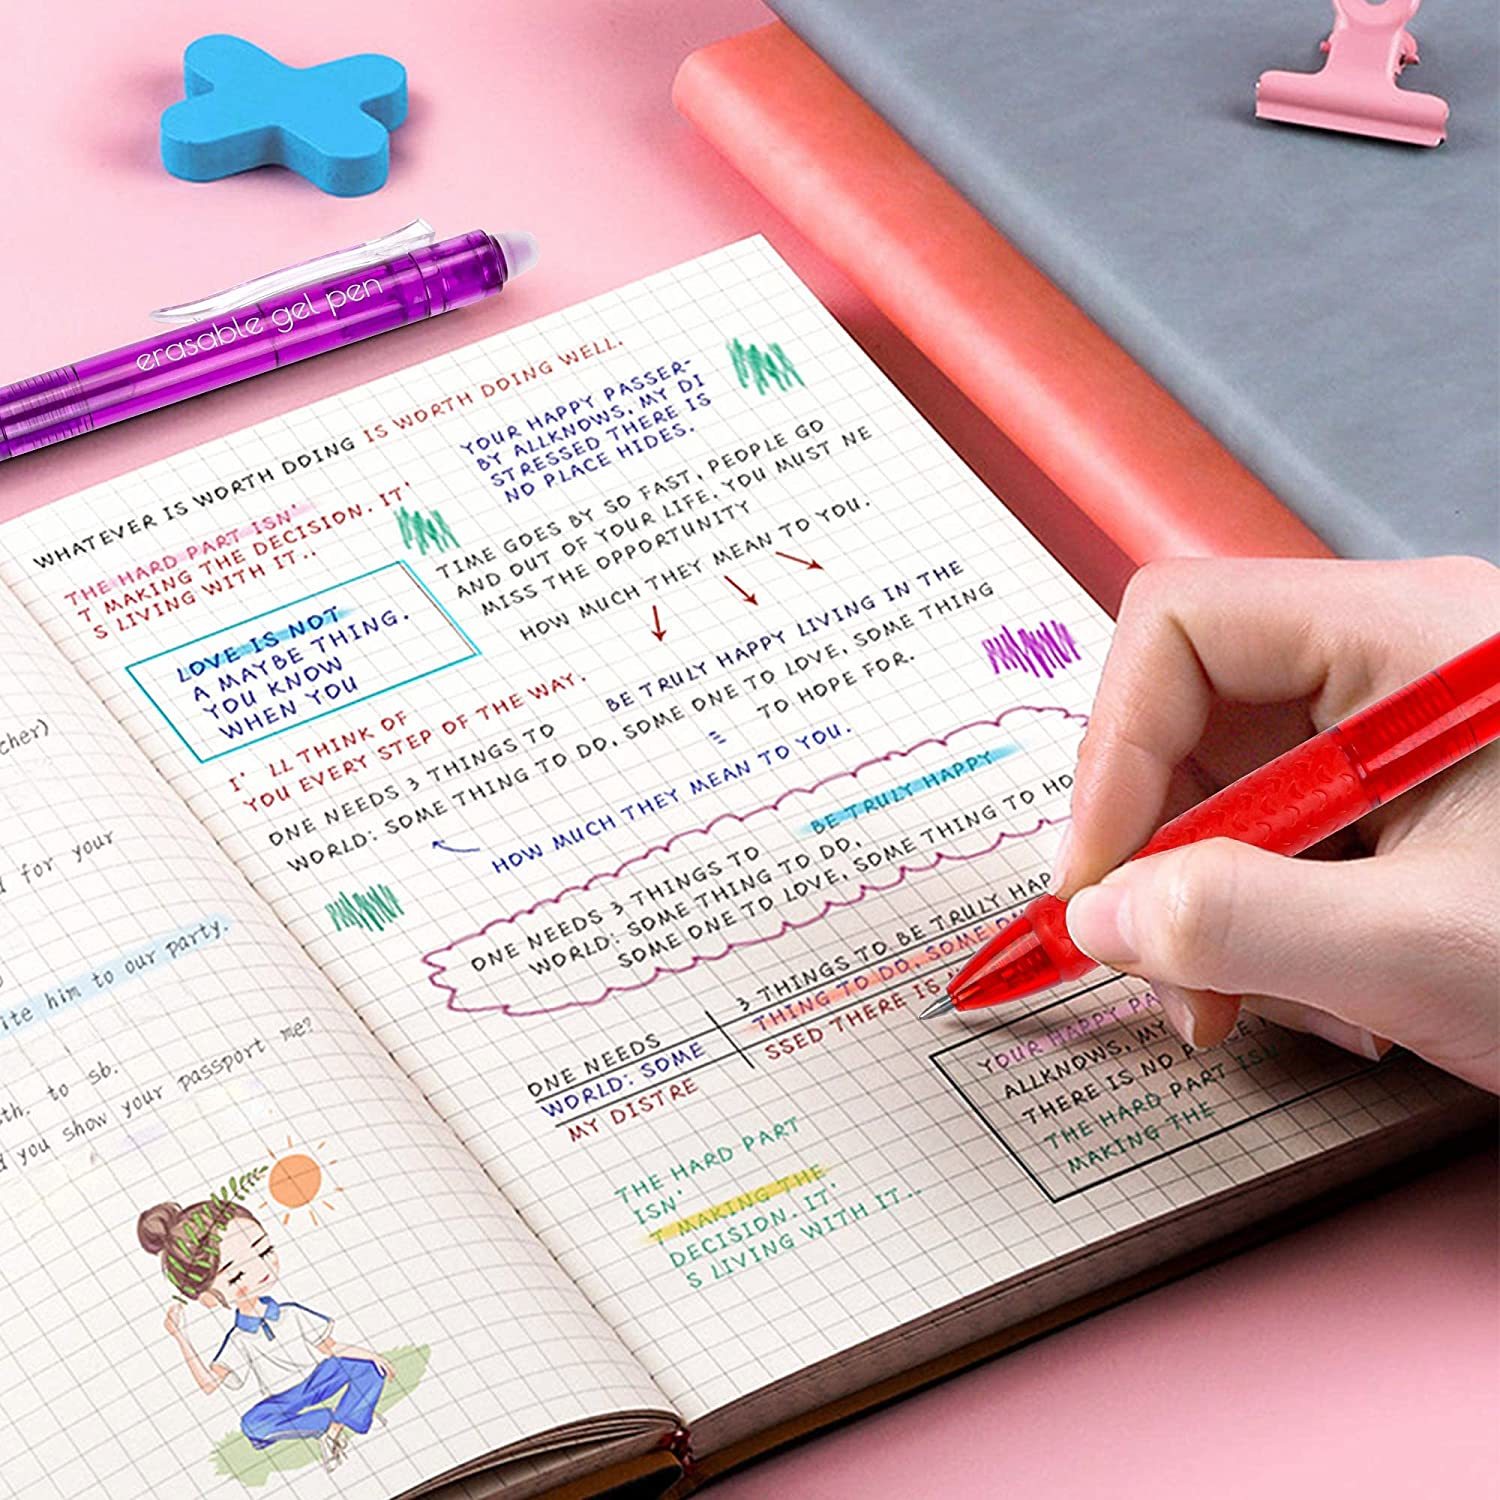 erasable gel pen
cher)
for your
ite him to our party.
th. to sb.
you show your passport me?
WHATEVER IS WORTH DOING IS WORTH DOING WELL.
THE HARD PART ISN'
T MAKING THE DECISION. IT'
S LIVING WITH IT..
YOUR HAPPY PASSER-
BY ALLKNOWS, MY DI
STRESSED THERE IS
NO PLACE HIDES.
LOVE IS NOT
A MAYBE THING.
YOU KNOW
WHEN YOU
TIME GOES BY SO FAST, PEOPLE GO
AND OUT OF YOUR LIFE. YOU MUST NE
MISS THE OPPORTUNITY
HOW MUCH THEY MEAN TO YOU.
I' LL THINK OF
YOU EVERY STEP OF THE WAY.
BE TRULY HAPPY LIVING IN THE
ONE NEEDS 3 THINGS TO
WORLD: SOME THING TO DO, SOME ONE TO LOVE, SOME THING
TO HOPE FOR.
HOW MUCH THEY MEAN TO YOU.
BE TRULY HAPPY
ONE NEEDS 3 THINGS TO
WORLD: SOME THING TO DO,
SOME ONE TO LOVE, SOME THING TO HO
ONE NEEDS
3 THINGS TO BE TRULY HAP
WORLD: SOME
THING TO DO, SOME
MY DISTRE
SSED THERE IS
YOUR HAPPY PA
ALLKNOWS, MY
THERE IS NO
THE HARD PART ISN
MAKING THE
THE HARD PART
ISN'
T MAKING THE
DECISION. IT'
S LIVING WITH IT..